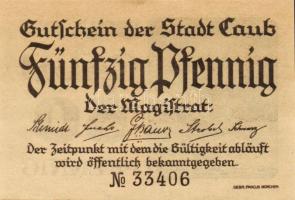 Gutschein der Stadt Caub
Fünfzig Pfennig
Der Magistrat:
Der Zeitpunkt mit dem die Gültigkeit abläuft
wird öffentlich bekanntgegeben.
№ 33406
GEBR. PARCUS MÜNCHEN